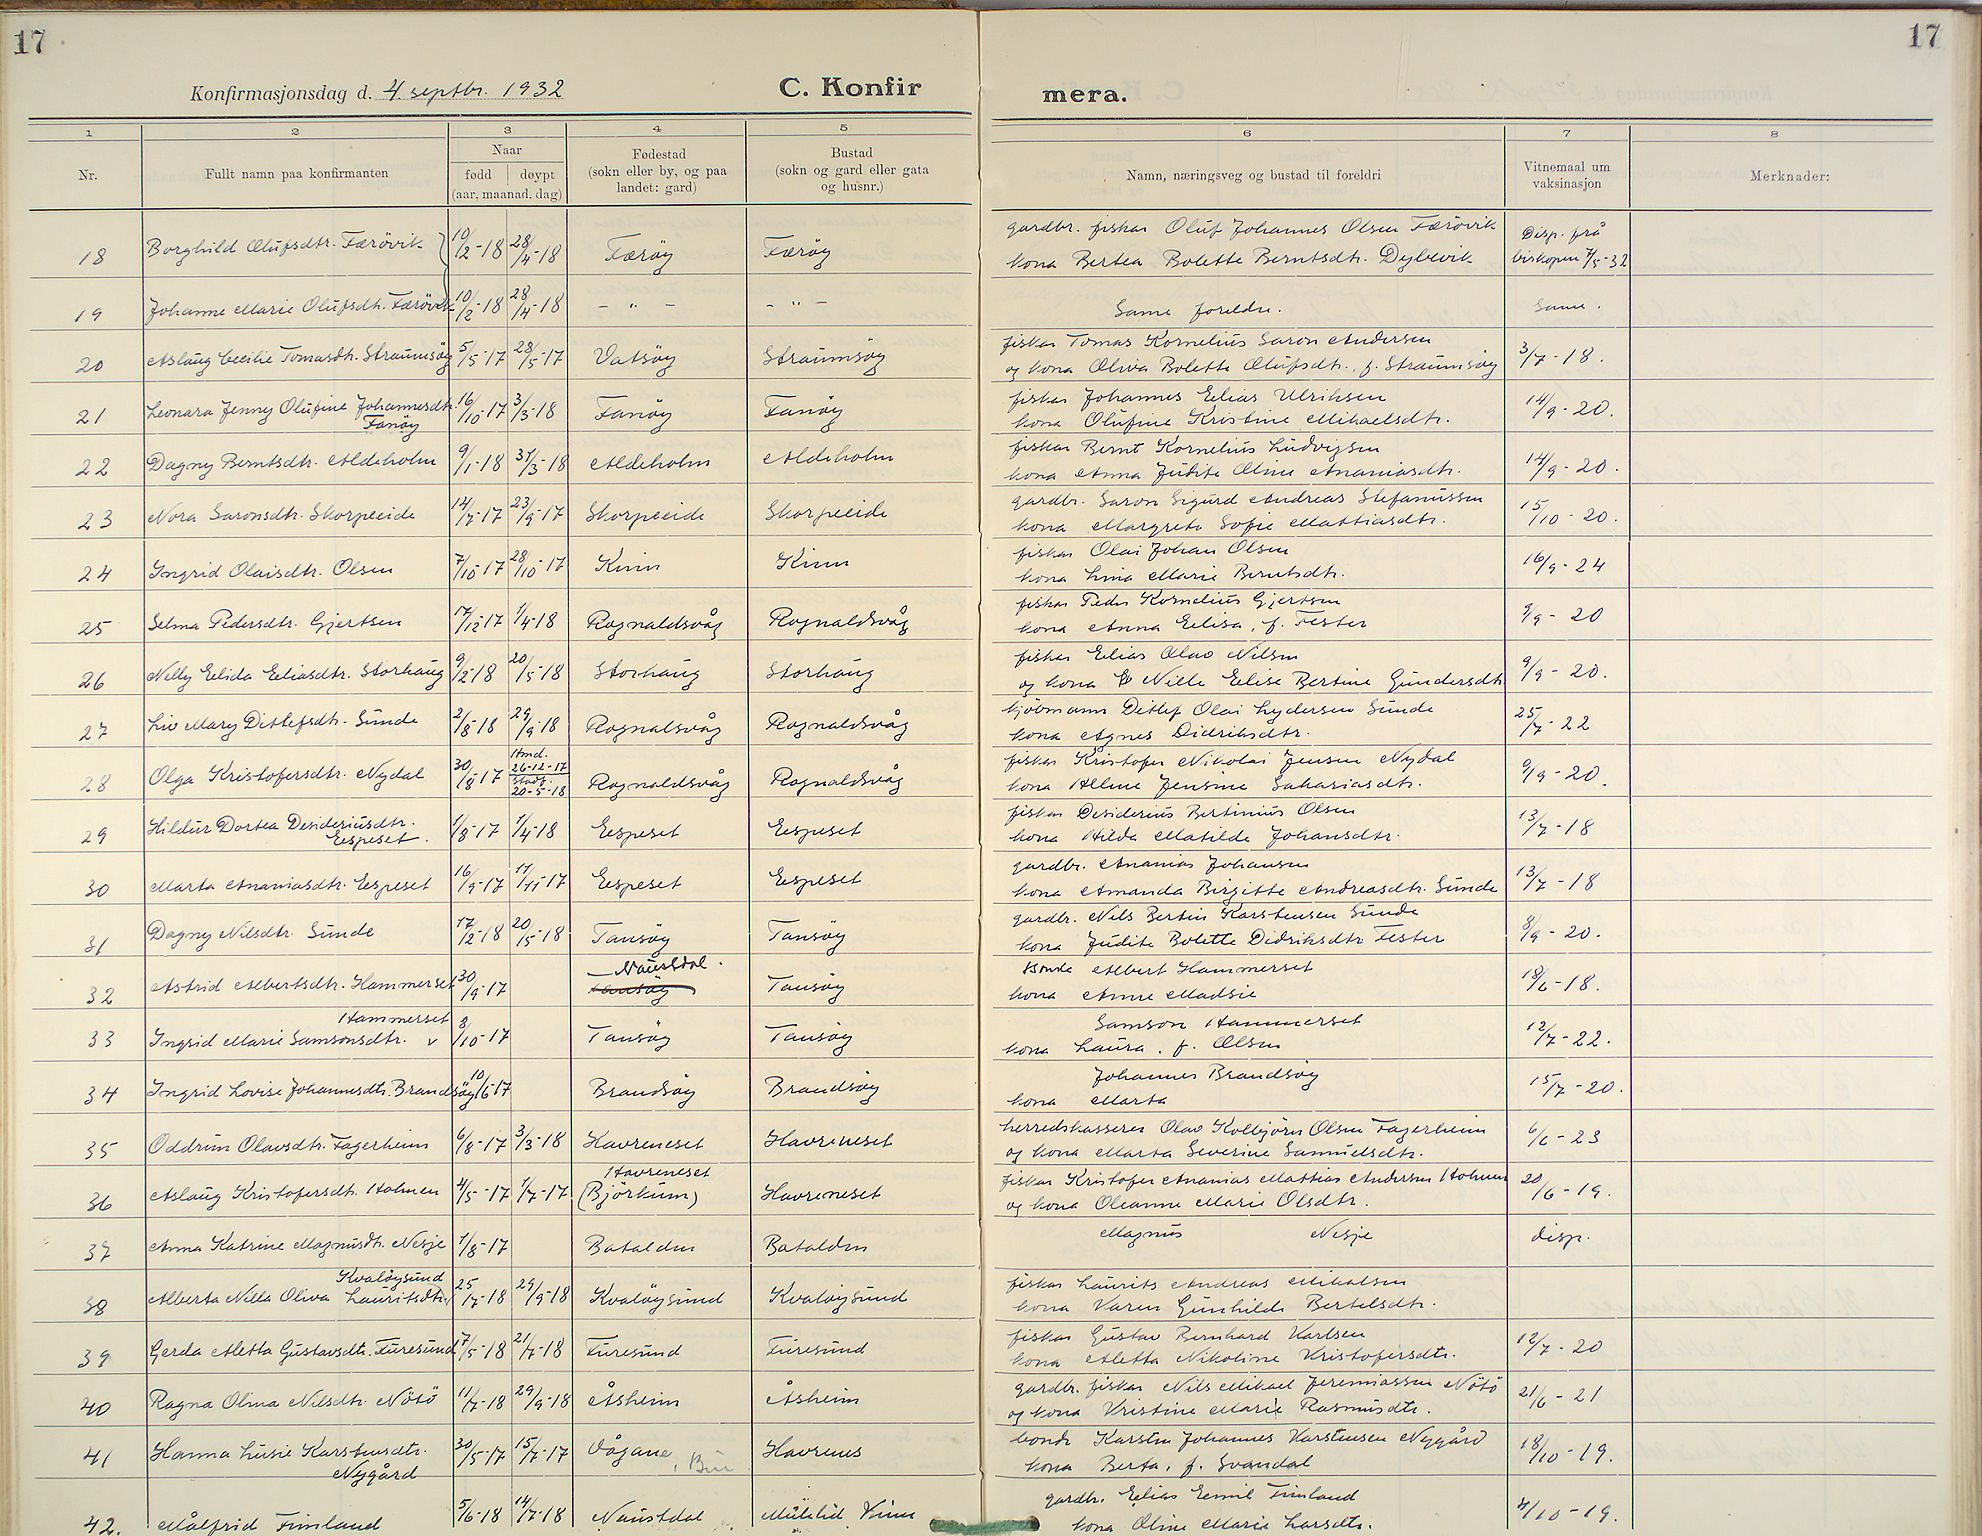 17
17
Konfirmasjonsdag d. 4. septbr. 1932
C. Konfir
mera.
1 2 3 4 5 6 7 8
Nr.
Fullt namn paa konfirmanten
Naar
fødd døypt
(aar, maanad. dag)
Fødestad
(sokn eller by, og paa
landet: gard)
Bustad
(sokn og gard eller gata
og husnr.)
Namn, næringsveg og bustad til foreldri
Vitnemaal um
vaksinasjon
Merknader:
18 Borghild Olufsdtr. Færövik 10/2-18 28/4-18 Færöy Færöy gardbr. fiskar Oluf Johannes Olsen Færövik Disp. frå
kona Bertea Bolette Berntsdtr. Dybevik biskopen 7/5-32
19 Johanne Marie Olufsdtr. Færövik 10/2-18 28/4-18 - " - - " - Same foreldre. Same.
20 Aslaug Cecilie Tomasdtr. Straumsöy 5/5-17 28/5-17 Vatsöy Straumsöy fiskar Tomas Kornelius Saron Andersen 3/7-18.
og kona Oliva Bolette Olufsdtr., f. Straumsöy
21 Leonara Jenny Olufine Johannesdtr. 16/10-17 3/3-18 Fanöy Fanöy fiskar Johannes Elias Ulriksen 14/9-20.
Fanöy kona Olufine Kristine Mikaelsdtr.
22 Dagny Berntsdtr. Aldeholm 9/1-18 31/3-18 Aldeholm Aldeholm fiskar Bernt Kornelius Ludvigsen 14/9-20.
kona Anna Judite Oline Ananiasdtr.
23 Nora Saronsdtr. Skorpeeide 14/7-17 23/9-17 Skorpeeide Skorpeeide gardbr. Saron Sigurd Andreas Stefanussen 15/10-20.
kona Margrete Sofie Mattiasdtr.
24 Ingrid Olaisdtr. Olsen 7/10-17 28/10-17 Kinn Kinn fiskar Olai Johan Olsen 16/9-24
kona Lina Marie Berntsdtr.
25 Selma Pedersdtr. Gjertsen 17/12-17 1/4-18 Rognaldsvåg Rognaldsvåg fiskar Peder Kornelius Gjertsen 9/9-20
kona Anna Elisa, f. Fester
26 Nelly Elida Eliasdtr. Storhaug 9/2-18 20/5-18 Storhaug Storhaug fiskar Elias Olav Nilsen 9/9-20.
og kona Nille Elise Bertine Gundersdtr
27 Liv Mary Ditlefsdtr. Sunde 2/8-18 29/9-18 Rognalsvåg Rognaldsvåg kjöbmann Ditlef Olai Lydersen Sunde 25/7-22
kona Agnes Didriksdtr.
28 Olga Kristofersdtr. Nydal 30/8-17 Hmd. 26-12-17 Stadf. 20-5-18 Rognaldsvåg Rognaldsvåg fiskar Kristofer Nikolai Jensen Nydal 9/9-20.
kona Alline Jensine Sakariasdtr.
29 Hildur Dortea Desideriusdtr. 1/8-17 1/4-18 Espeset Espeset fiskar Desiderius Bertinius Olsen 13/7-18
Espeset. kona Hilda Matilde Johansdtr.
30 Marta Ananiasdtr. Espeset 16/9-17 11/11-17 Espeset Espeset gardbr. Ananias Johansen 13/7-18
kona Amanda Birgitte Andreasdtr. Sunde
31 Dagny Nilsdtr. Sunde 17/2-18 20/5-18 Tansöy Tansöy gardbr. Nils Bertin Karstensen Sunde 8/9-20.
kona Judite Bolette Didriksdtr Fester
32 Astrid Albertsdtr. Hammerset 30/9-17 Naustdal. Tansöy Tansöy Bonde Albert Hammerset 18/6-18.
kona Anne Madsie
33 Ingrid Marie Samsonsdtr. Hammerset 8/10-17 Tansöy Tansöy Samson Hammerset 12/7-22.
kona Laura, f. Olsen
34 Ingrid Lovise Johannesdtr. Brandsöy 10/6-17 Brandsöy Brandsöy Johannes Brandsöy 15/7-20.
kona Marta
35 Oddrun Olavsdtr. Fagerheim 6/8-17 3/3-18 Havreneset Havreneset herredskasserer Olav Kolbjörn Olsen Fagerheim 6/6-23
og kona Marta Severine Samuelsdtr.
36 Aslaug Kristofersdtr. Holmen 4/5-17 1/7-17 Havreneset (Björkum) Havreneset fiskar Kristofer Ananias Mattias Andersen Holmen 20/6-19.
og kona Oleanne Marie Olsdtr.
37 Anna Katrine Magnusdtr. Nesje 1/8-17 Batalden Batalden Magnus Nesje disp.
38 Alberta Nilla Oliva Lauritsdtr. Kvalöysund 25/7-18 29/9-18 Kvalöysund Kvalöysund fiskar Laurits Andreas Mikalsen
kona Karen Gunhilde Bertelsdtr.
39 Gerda Aletta Gustavsdtr. Furesund 17/5-18 21/7-18 Furesund Furesund fiskar Gustav Bernhard Karlsen 12/7-20
kona Aletta Nikoline Kristofersdtr.
40 Ragna Olina Nilsdtr. Nötö 11/7-18 29/9-18 Åsheim Åsheim gardbr. fiskar Nils Mikael Jeremiassen Nötö 21/6-21
og kona Kristine Marie Rasmusdtr.
41 Hanna Lusie Karstensdtr. 30/5-17 15/7-17 Vågane, Havrenes bonde Karsten Johannes Karstensen Nygård 18/10-19.
Nygård kona Berta, f. Svandal
42. Målfrid Fimland 5/6-18 14/7-18 Naustdal Kinn gardbr. Elias Emil Fimland 4/10-19.
kona Oline Marie Larsdtr.